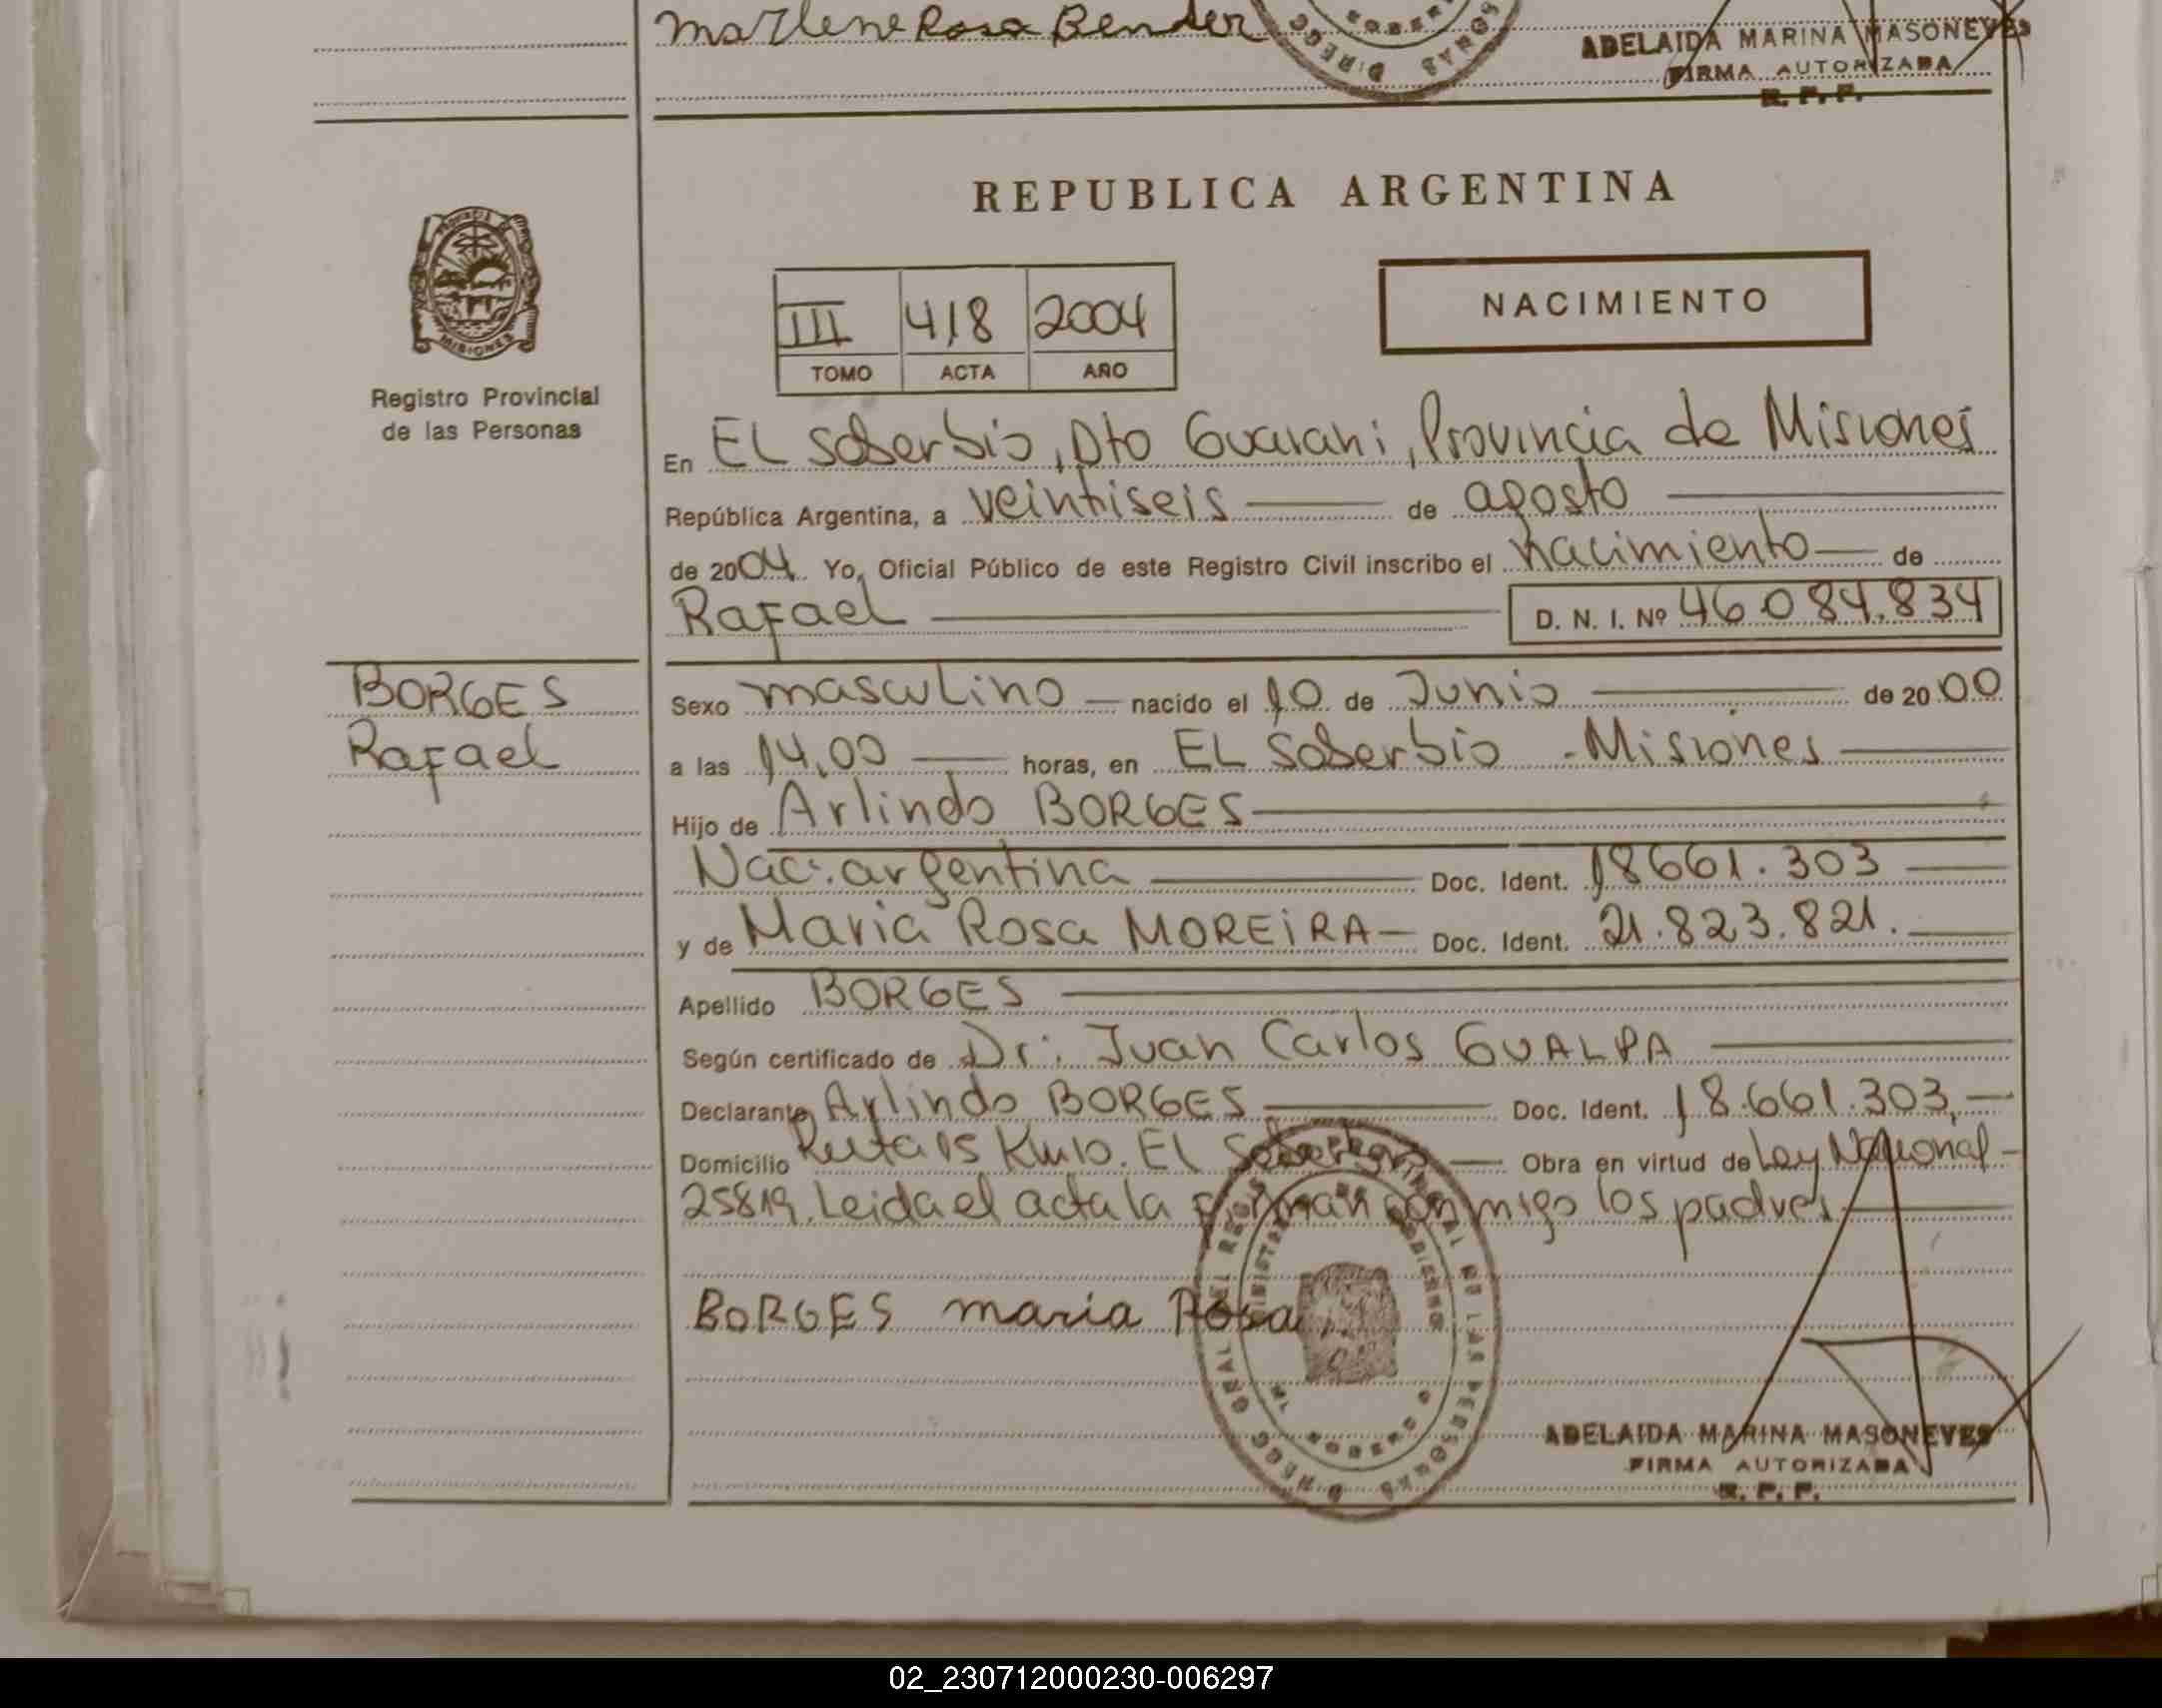 Marlene Rosa Bender
ADELAIDA MARINA MASONEVES
FIRMA AUTORIZADA
R. P. P.
REPUBLICA ARGENTINA
NACIMIENTO
III 418 2004
TOMO ACTA AÑO
MISIONES
Registro Provincial
de las Personas
En EL Soberbio, Dto Guarani, Provincia de Misiones
República Argentina, a veintiseis — de agosto
de 2004. Yo, Oficial Público de este Registro Civil inscribo el nacimiento — de
Rafael — D. N. I. Nº 46.084.834
BORGES
Rafael
Sexo masculino — nacido el 10 de Junio — de 2000
a las 14,00 — horas, en EL Soberbio - Misiones
Hijo de Arlindo BORGES
Nac. argentina — Doc. Ident. 18661.303
y de Maria Rosa MOREIRA — Doc. Ident. 21.823.821.
Apellido BORGES
Según certificado de Dr. Juan Carlos GUALPA
Declarante Arlindo BORGES — Doc. Ident. 18.661.303,—
Domicilio Ruta 15 Km 10. EL Soberbio — Obra en virtud de Ley Nacional -
25819. Leida el acta la firman conmigo los padres
BORGES maria Rosa
ADELAIDA MARINA MASONEVES
FIRMA AUTORIZADA
R. P. P.
02_230712000230-006297